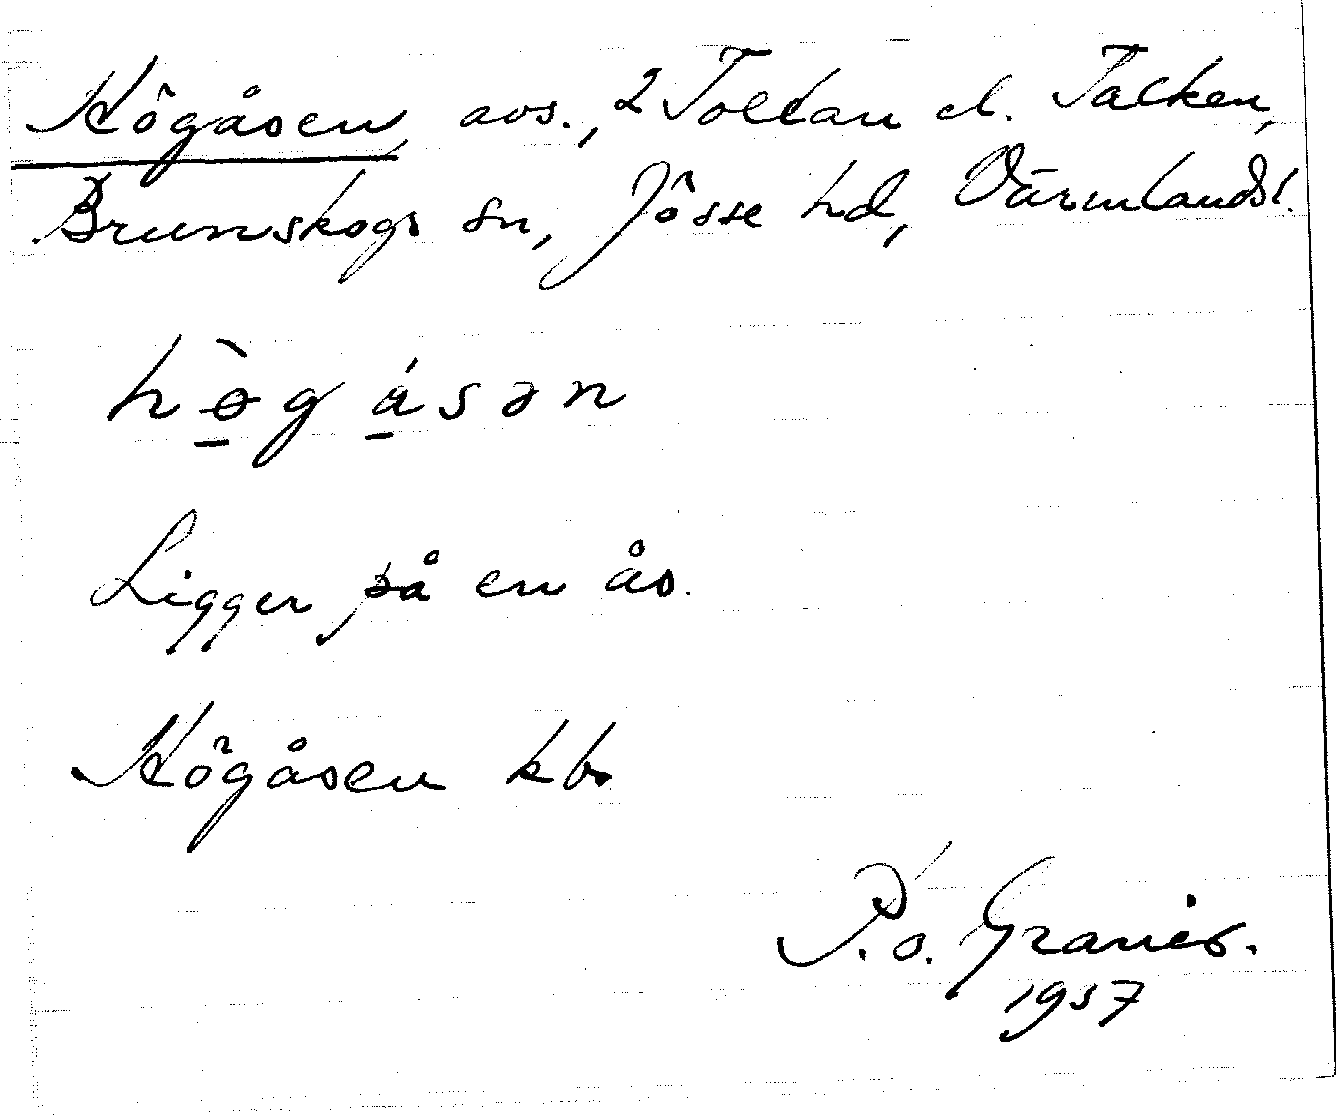 Högåsen, avs., 2 Tolitan el. Tacken,
Brunskogs sn, Jösse hd, Värmlands l.
hø̀gásən
Ligger på en ås.
Högåsen kb.
P. o. Granér.
1937